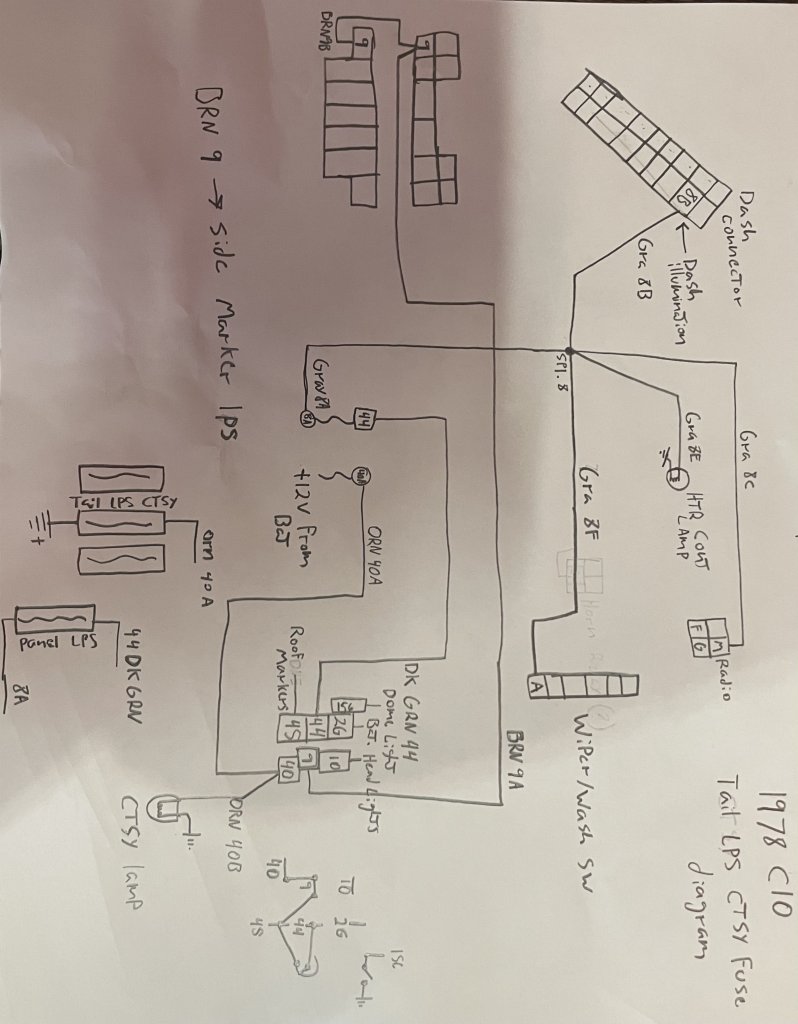 1978 C10
Tail LPS CTSY Fuse
diagram
Dash
connector
8B
Dash
illumination
Gra 8B
SPl. 8
Gra 8C
Gra 8E
HTR Cont
LAMP
Radio
F
G
Gra 8F
A
Wiper/Wash SW
9
9
BRN 9B
BRN 9 → Side Marker lps
Gray 8A
8A
44
40A
+12V From
Bat
ORN 40A
DK GRN 44
Dome Light
Bat.
Head Lights
Roof
Markers
26
45
44
9
10
40
BRN 9A
ORN 40B
CTSY lamp
Tail LPS CTSY
orn 40A
+
Panel LPS
44 DK GRN
8A
10
9
40
26
44
45